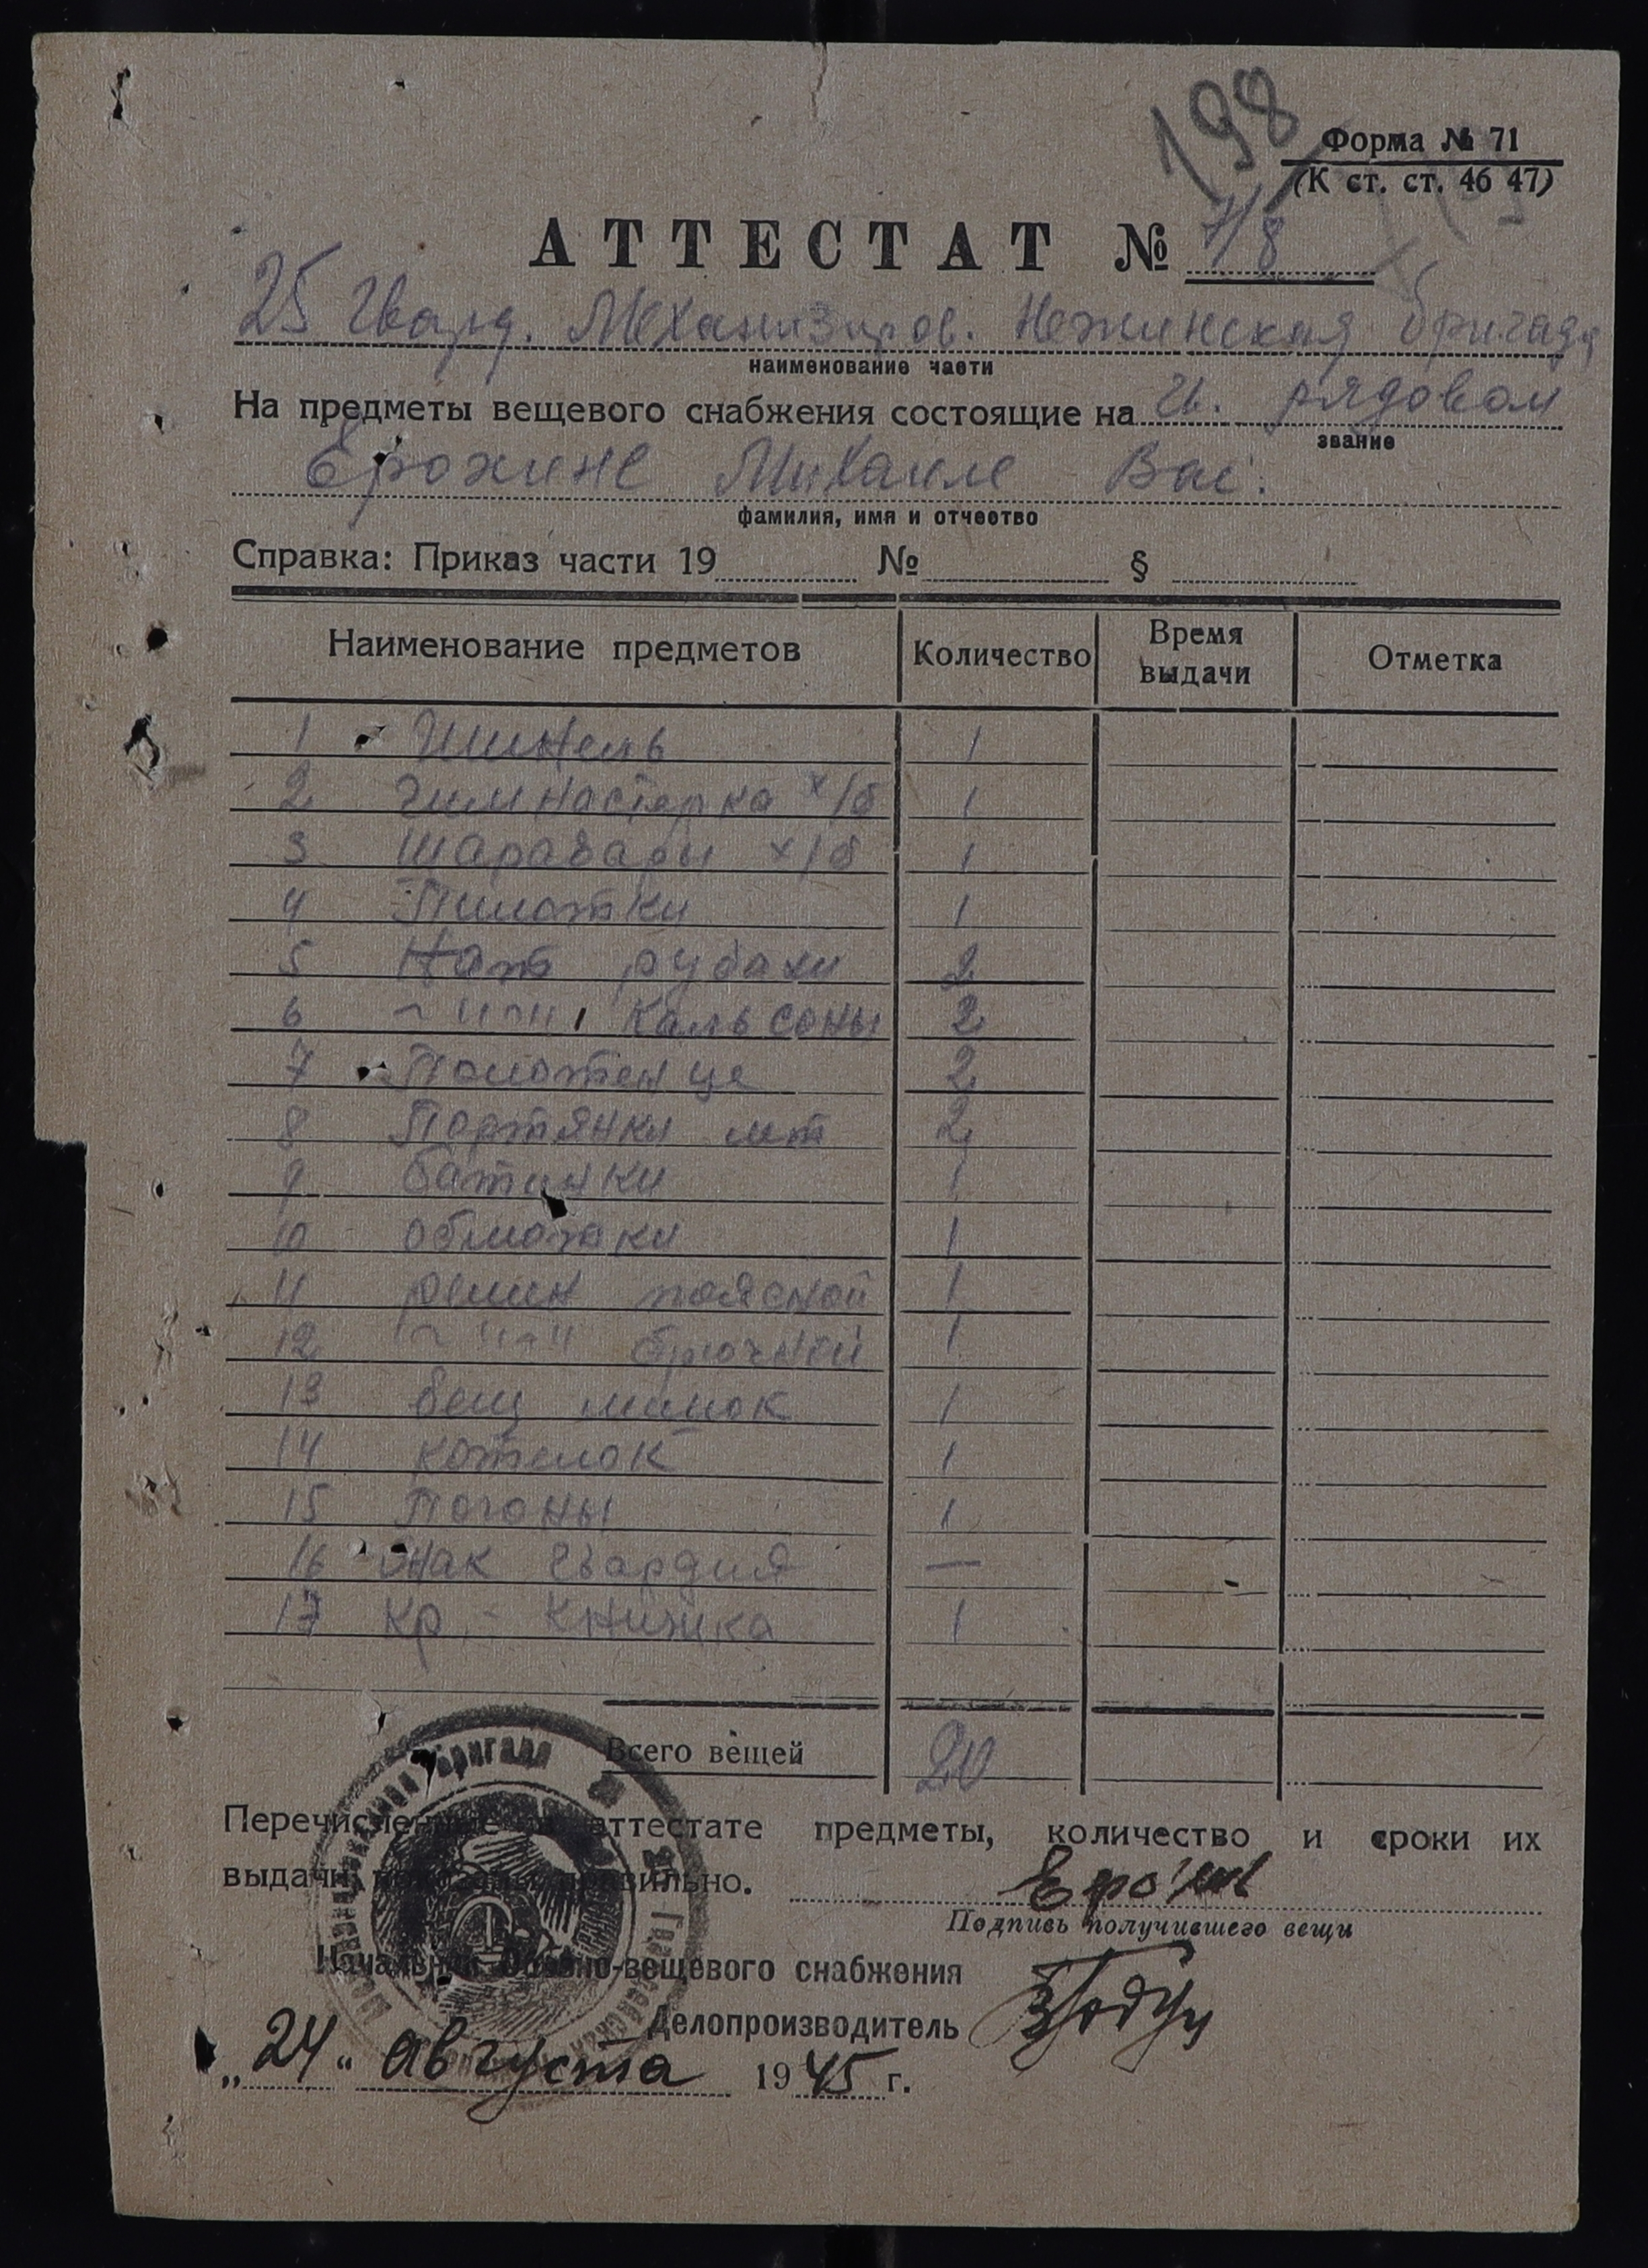 198
Форма № 71
(К ст. ст. 46 47)
АТТЕСТАТ № 7/8
25 Гвард. Механизиров. Нежинская бригада
наименование части
На предметы вещевого снабжения состоящие на гв. рядовом
звание
Ерохине Михаиле Вас.
фамилия, имя и отчество
Справка: Приказ части 19 № §
Наименование предметов Количество Время выдачи Отметка
1 Шинель 1
2 Гимнастерка х/б 1
3 Шаравары х/б 1
4 Пилотки 1
5 Нат рубахи 2
6 ~"~" кальсоны 2
7 Полотенце 2
8 Портянки лет 2
9 Батинки 1
10 Обмотки 1
11 Ремен поясной 1
12 ~"~" брючной 1
13 Вещ мешок 1
14 Котелок 1
15 Погоны 1
16 Знак Гвардия —
17 Кр. - Книжка 1
Всего вещей 20
Перечисленные в аттестате предметы, количество и сроки их
выдачи показаны правильно.
Подпись получившего вещи
Начальник обозно-вещевого снабжения
Делопроизводитель
„24" августа 1945 г.